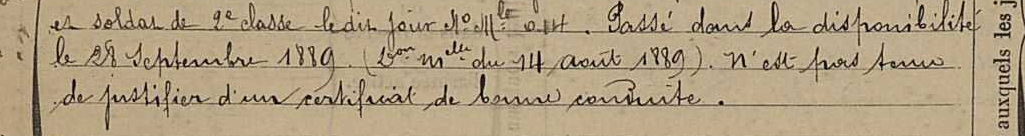 et soldat de 2e classe le dit jour No Mle 214. Passé dans la disponibilité
le 28 Septembre 1889. (Don mlle du 14 août 1889). N'est pas tenu
de justifier d'un certificat de bonne conduite.
auxquels les j